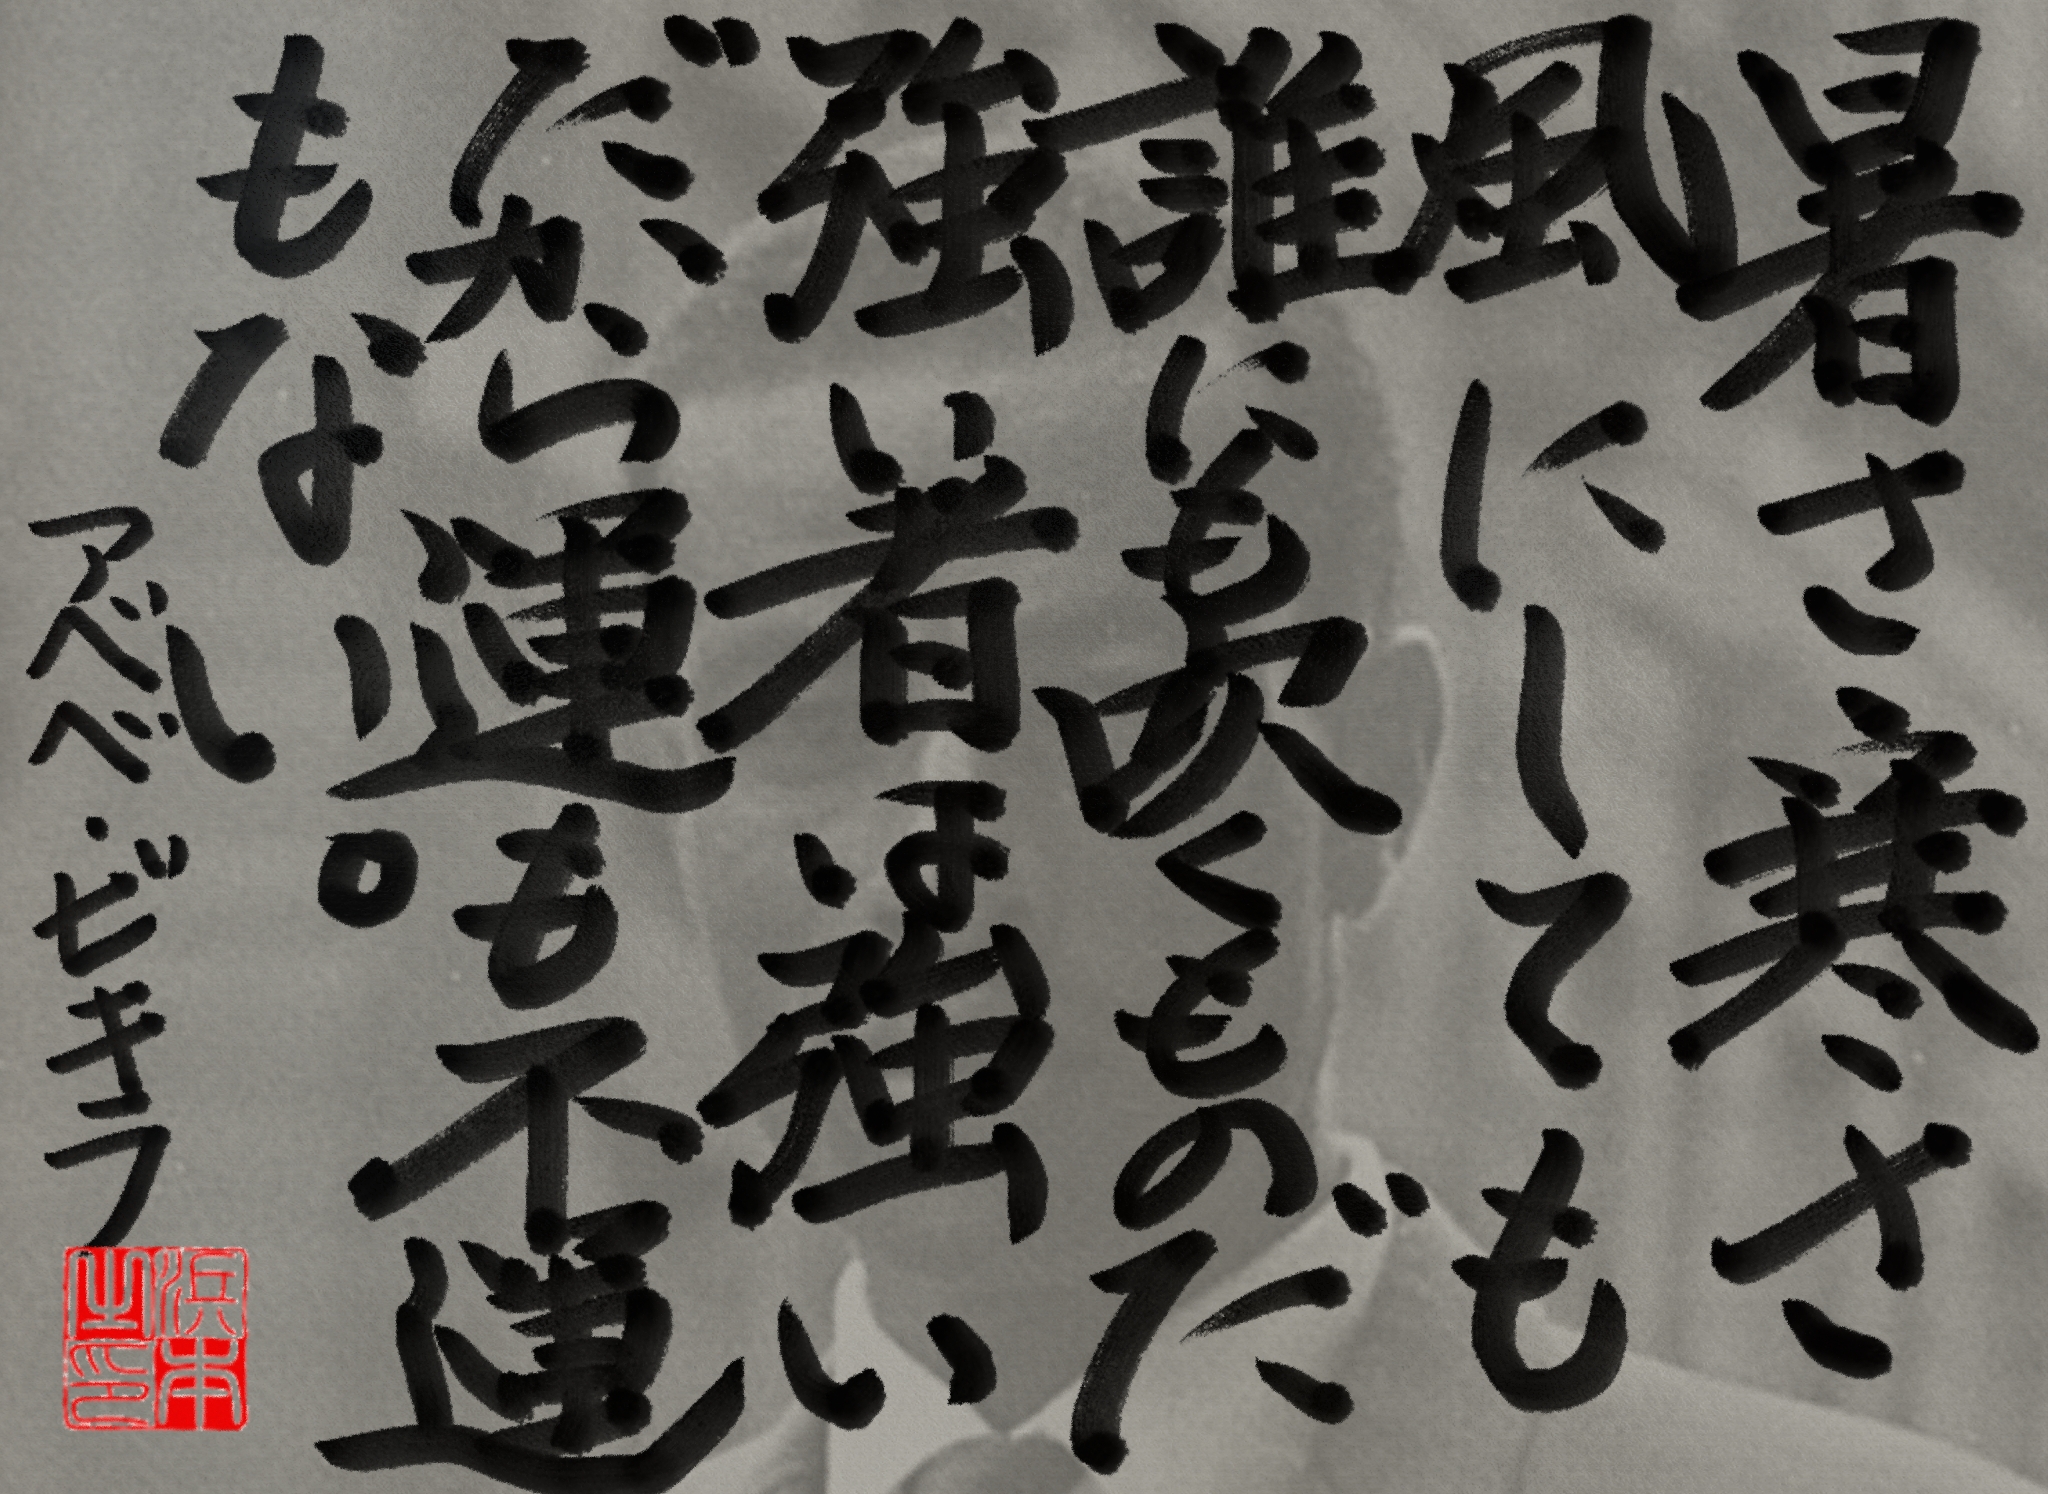 暑さ寒さ
風にしても
誰にも吹くものだ
強い者は強い
だから運も不運
もない。
アベベ・ビキラ
浜本之印